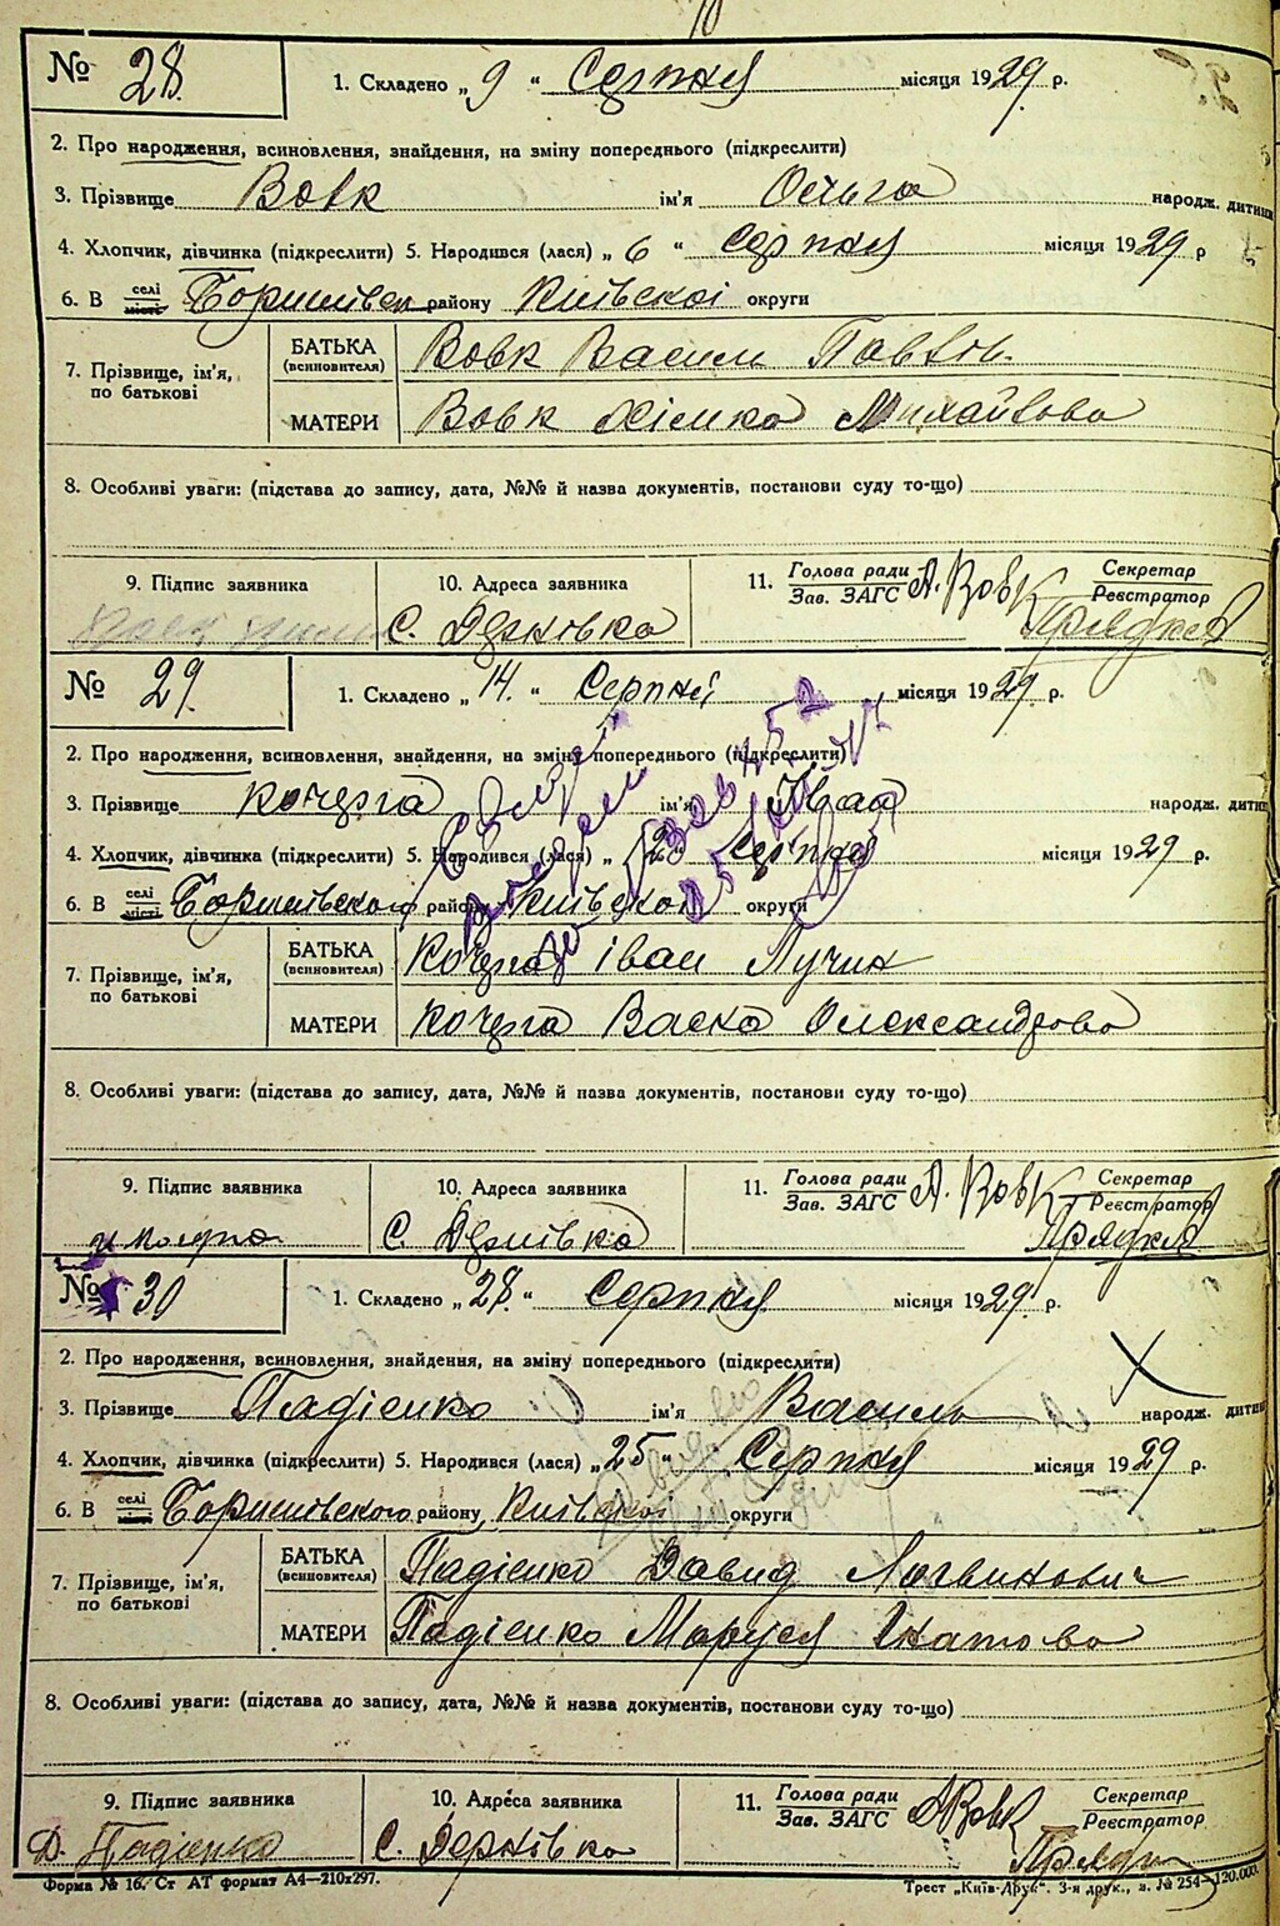 10
№ 28. 1. Складено „ 9 “ Серпня місяця 1929. р.
2. Про народження, всиновлення, знайдення, на зміну попереднього (підкреслити)
3. Прізвище Вовк ім'я Ольга народж. дитини
4. Хлопчик, дівчинка (підкреслити) 5. Народився (лася) „ 6 “ Серпня місяця 1929 р
6. В селі місті Боришпівськ району Київскоі округи
7. Прізвище, ім'я, по батькові
БАТЬКА (всиновителя) Вовк Василь Павлов.
МАТЕРИ Вовк Хімка Михайлова
8. Особливі уваги: (підстава до запису, дата, №№ й назва документів, постанови суду то-що)
9. Підпис заявника 10. Адреса заявника 11. Голова ради Зав. ЗАГС А. Вовк Секретар Реєстратор
С. Дернівка
№ 29. 1. Складено „ 14. “ Серпня місяця 1929. р.
2. Про народження, всиновлення, знайдення, на зміну попереднього (підкреслити)
3. Прізвище Кочерга ім'я Іван народж. дитин
4. Хлопчик, дівчинка (підкреслити) 5. Народився (лася) „ “ Серпня місяця 1929 р.
6. В селі місті Боришпівського району Київскоі округи
7. Прізвище, ім'я, по батькові
БАТЬКА (всиновителя) Кочерга Іван Лучин
МАТЕРИ Кочерга Васка Олександрова
8. Особливі уваги: (підстава до запису, дата, №№ й назва документів, постанови суду то-що)
9. Підпис заявника 10. Адреса заявника 11. Голова ради Зав. ЗАГС А. Вовк Секретар Реєстратор
С. Дернівка
№ 30 1. Складено „ 28. “ Серпня місяця 1929. р.
2. Про народження, всиновлення, знайдення, на зміну попереднього (підкреслити)
3. Прізвище Падієнко ім'я Василь народж. дитин
4. Хлопчик, дівчинка (підкреслити) 5. Народився (лася) „ 25 “ Серпня місяця 1929 р.
6. В селі місті Боришпівського району Київскоі округи
7. Прізвище, ім'я, по батькові
БАТЬКА (всиновителя) Падієнко Давид Логвинович
МАТЕРИ Падієнко Маруся Гнатова
8. Особливі уваги: (підстава до запису, дата, №№ й назва документів, постанови суду то-що)
9. Підпис заявника 10. Адреса заявника 11. Голова ради Зав. ЗАГС А Вовк Секретар Реєстратор
Д. Падіенко С. Дернівка
Форма № 16. Ст АТ формат А4—210x297. Трест „Київ-Друк“. 3-я друк., з. № 254—120.000.